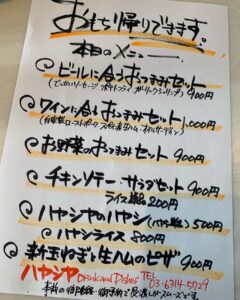 おもち帰りできます。
本日のメニュー
ビールに合うおつまみセット
(でっかいソーセージ、ポテトフライ、ガーリックシュリンプ) 900円
ワインに合うおつまみセット
1,000円
お野菜のおつまみセット 900円
チキンソテー・サラダセット 900円
ライス 200円
ハヤシヤのハヤシ 500円
ハヤシライス 800円
新玉ねぎと生ハムのピザ 900円
ハヤシヤ Drink and Dishes TEL
03-6314-5729